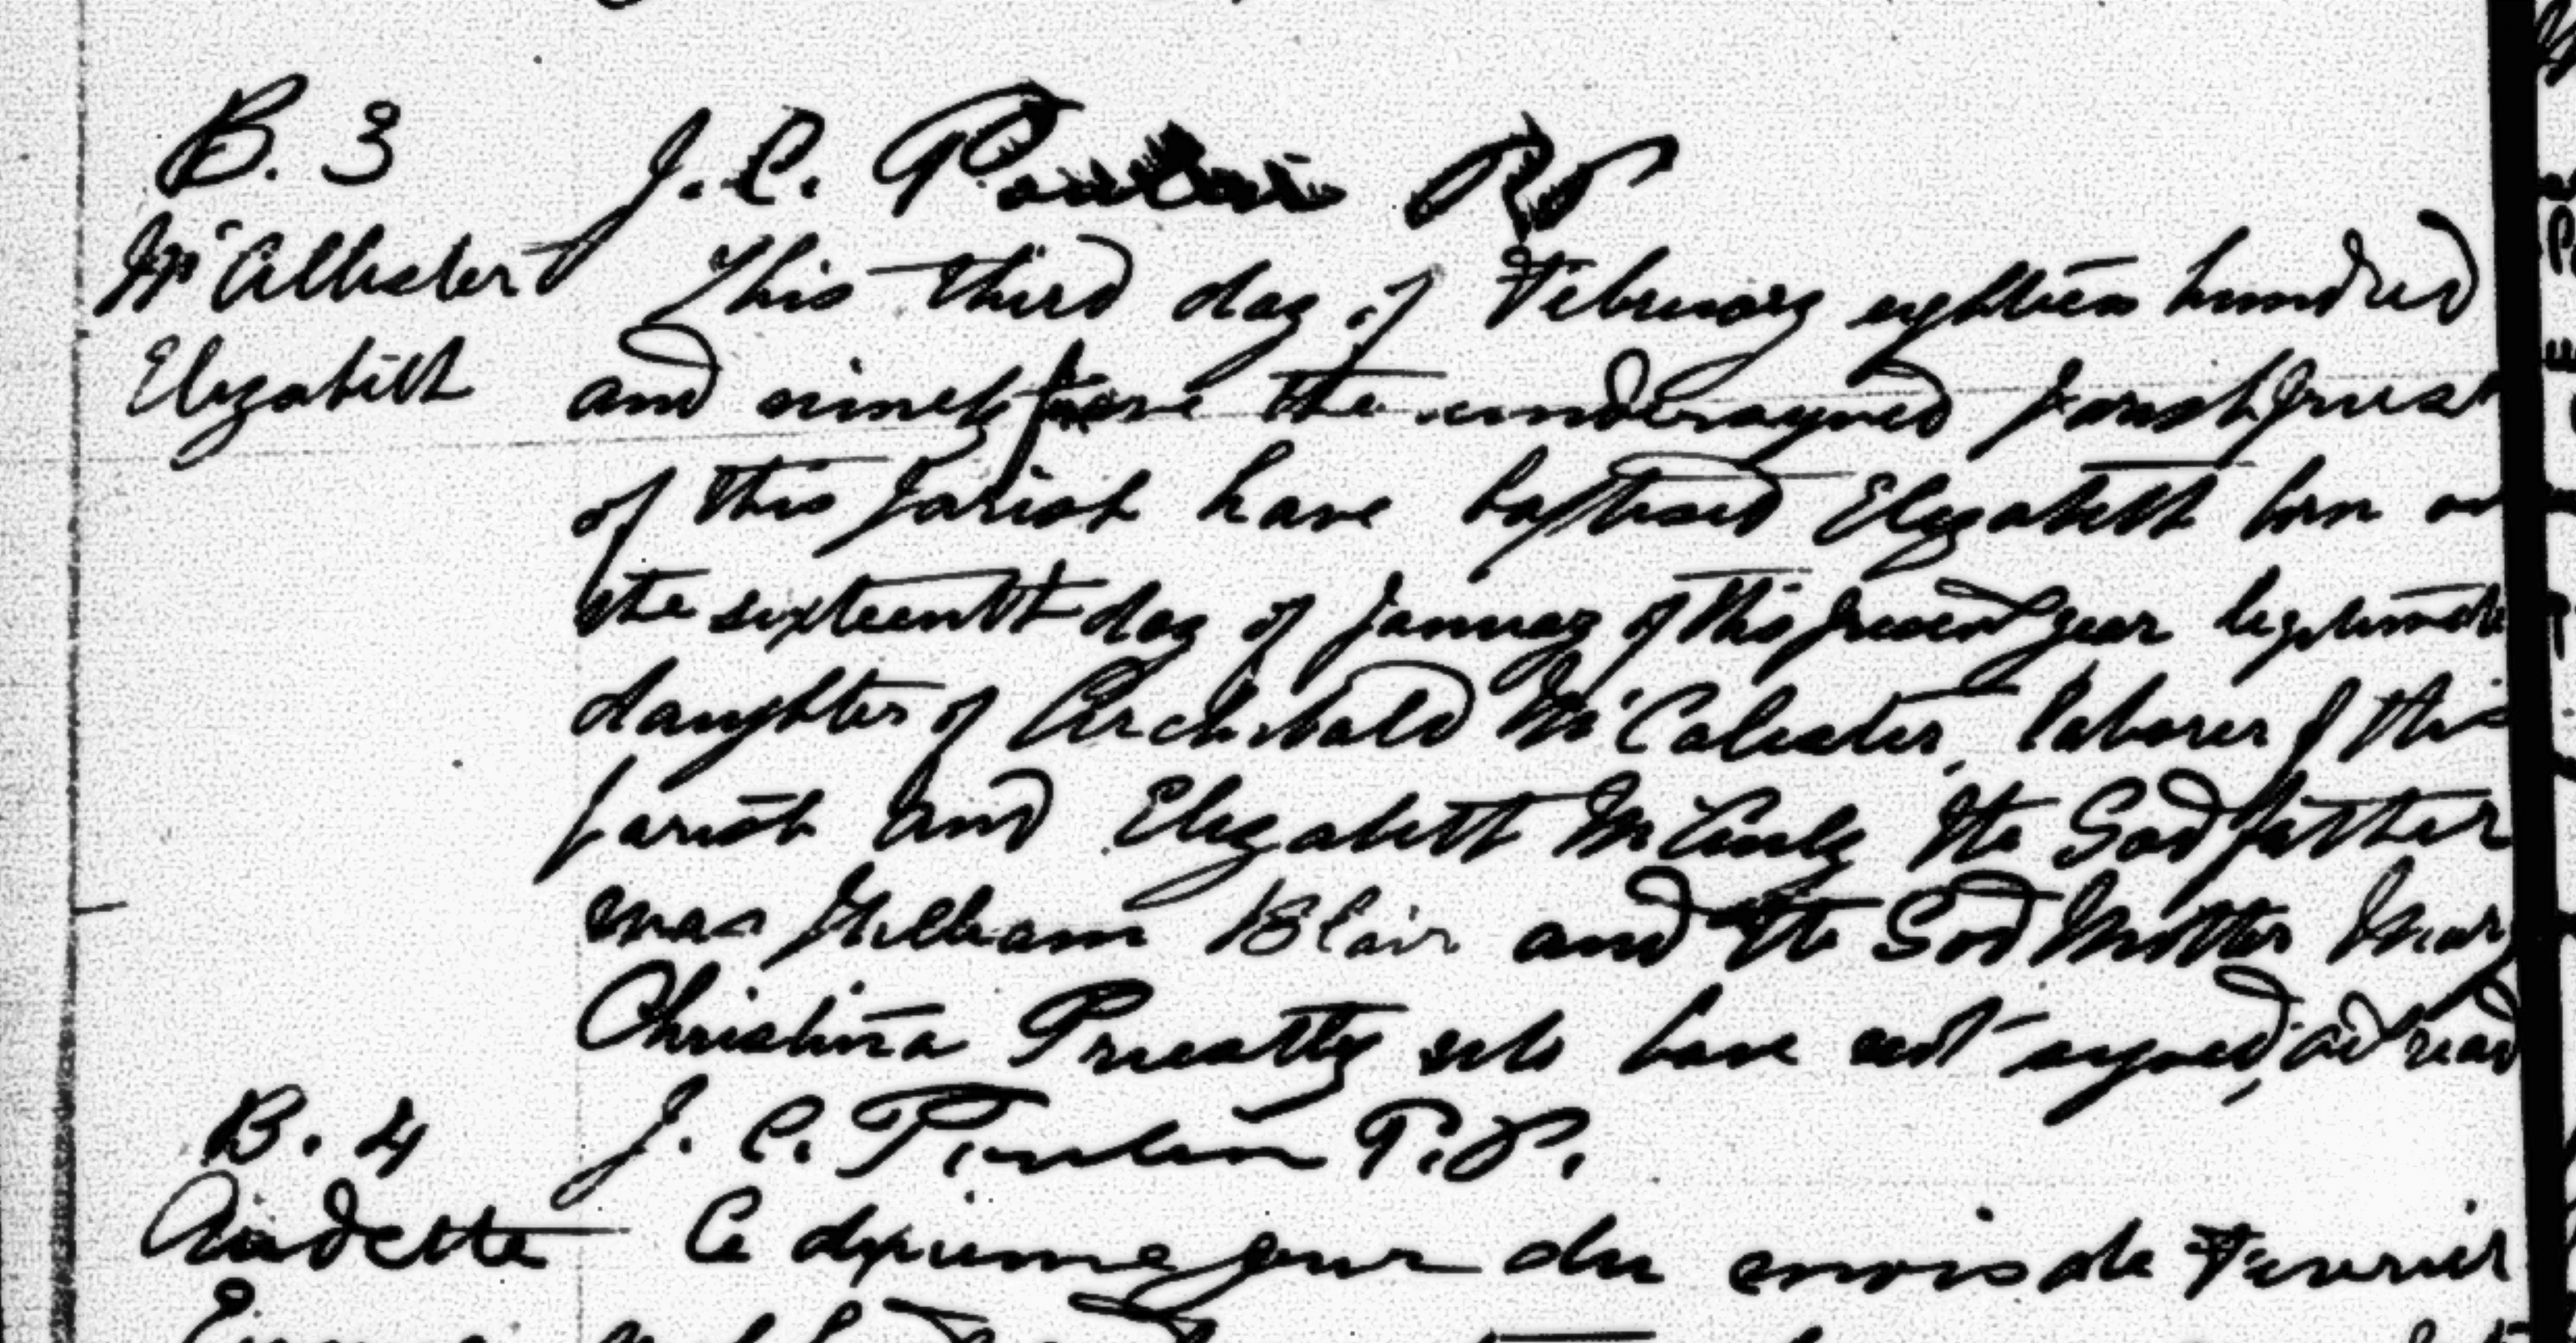 B. 3
J. C.
McAllister
This third day of February eighteen hundred
Elizabeth
and ninety the undersigned parish priest
of this parish have baptised Elizabeth born on
the sixteenth day of January of this present year legitimate
daughter of Archibald McCalister, laborer of this
parish and Elizabeth the God father
was William Blair and the God Mother Mary
Christina who have not signed, read
B. 4
J. C. P.P.
Audette
Ce jour du mois de Fevrier